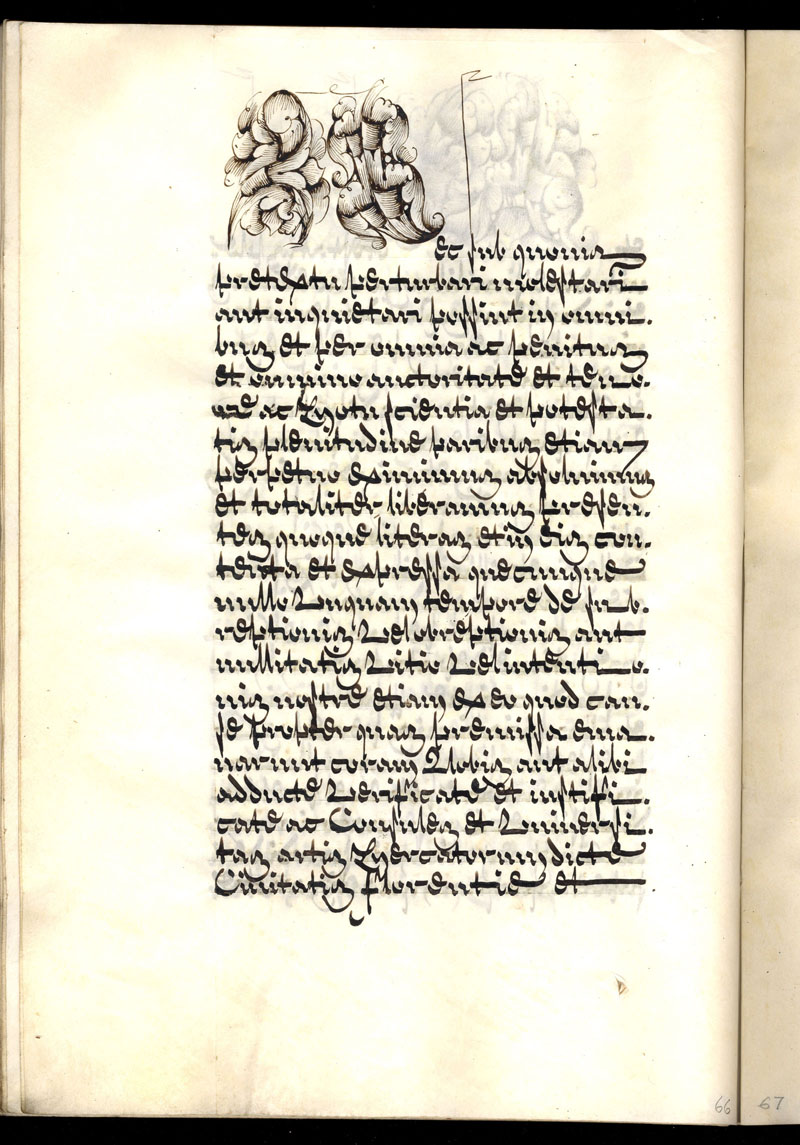 Nec sub quovis
pretextu perturbari molestari
aut inquietari possint in omni.
bus et per omnia ac penitus
et omnino auctoritate et teno.
re ac Motu scientia et potesta.
tis plenitudine paribus etiam
perpetuo eximimus absolvimus
et totaliter liberamus presen.
tes quoque literas et in eis con.
tenta et expressa quecunque
nullo Unquam tempore de sub.
reptionis Vel obreptionis aut
nullitatis Vitio Vel intentio.
nis nostre etiam ex eo quod cau.
se propter quas premissa ema.
narunt coram Nobis aut alibi
adducte Verificate et iustifi.
cate ac Consules et Universi.
tas artis Mercatorum dicte
Civitatis Florentie et
66 67